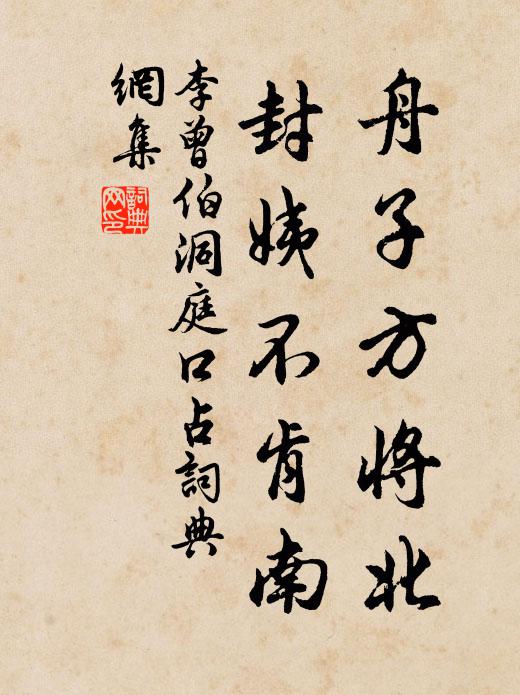 舟子方将北
封姨不肯南
李曾伯洞庭口占詞典
網集
詞典網印